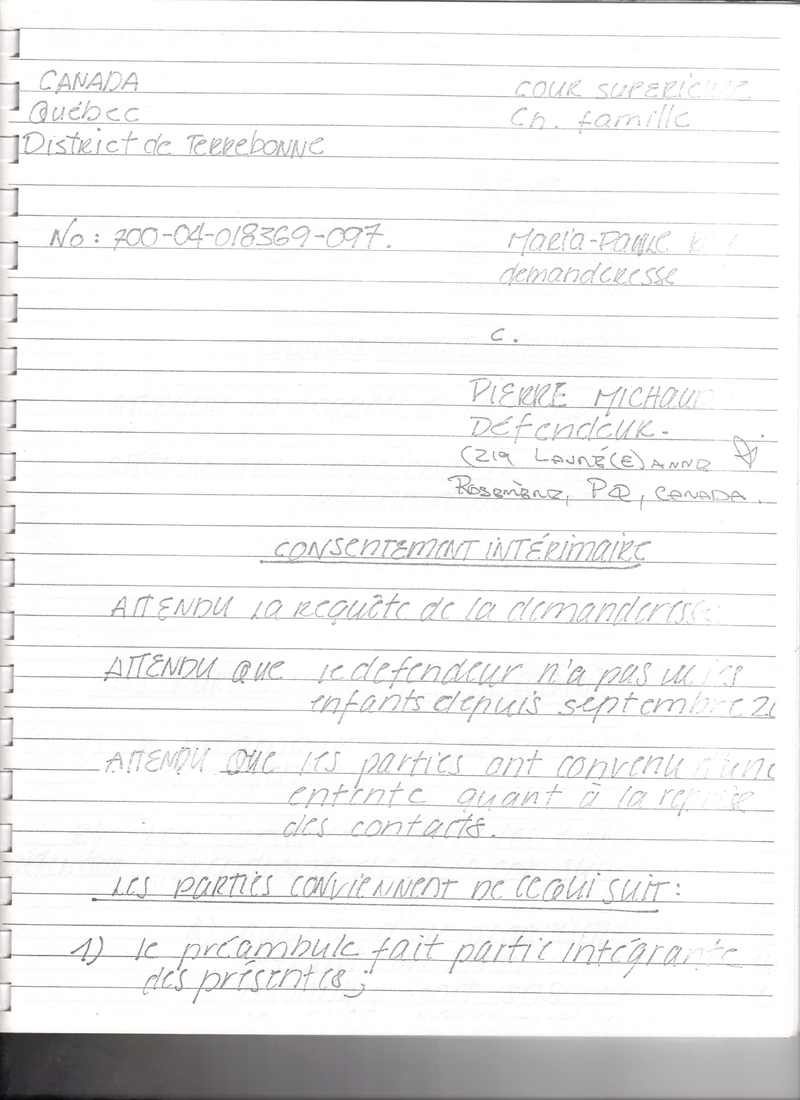 CANADA
COUR SUPERIEURE
Québec
Ch. famille
District de TERREBONNE
No : 700-04-018369-097.
MARIA-PAULE
demanderesse
c.
PIERRE MICHAUD
Défendeur.
(219
ROSEMÈRE, PQ, CANADA.
CONSENTEMENT INTÉRIMAIRE
ATTENDU la requête de la demanderesse
ATTENDU que le défendeur n'a pas vu les
enfants depuis septembre
ATTENDU que les parties ont convenu d'une
entente quant à la reprise
des contacts.
LES PARTIES CONVIENNENT DE CE QUI SUIT :
1) le préambule fait partie intégrante
des présentes;